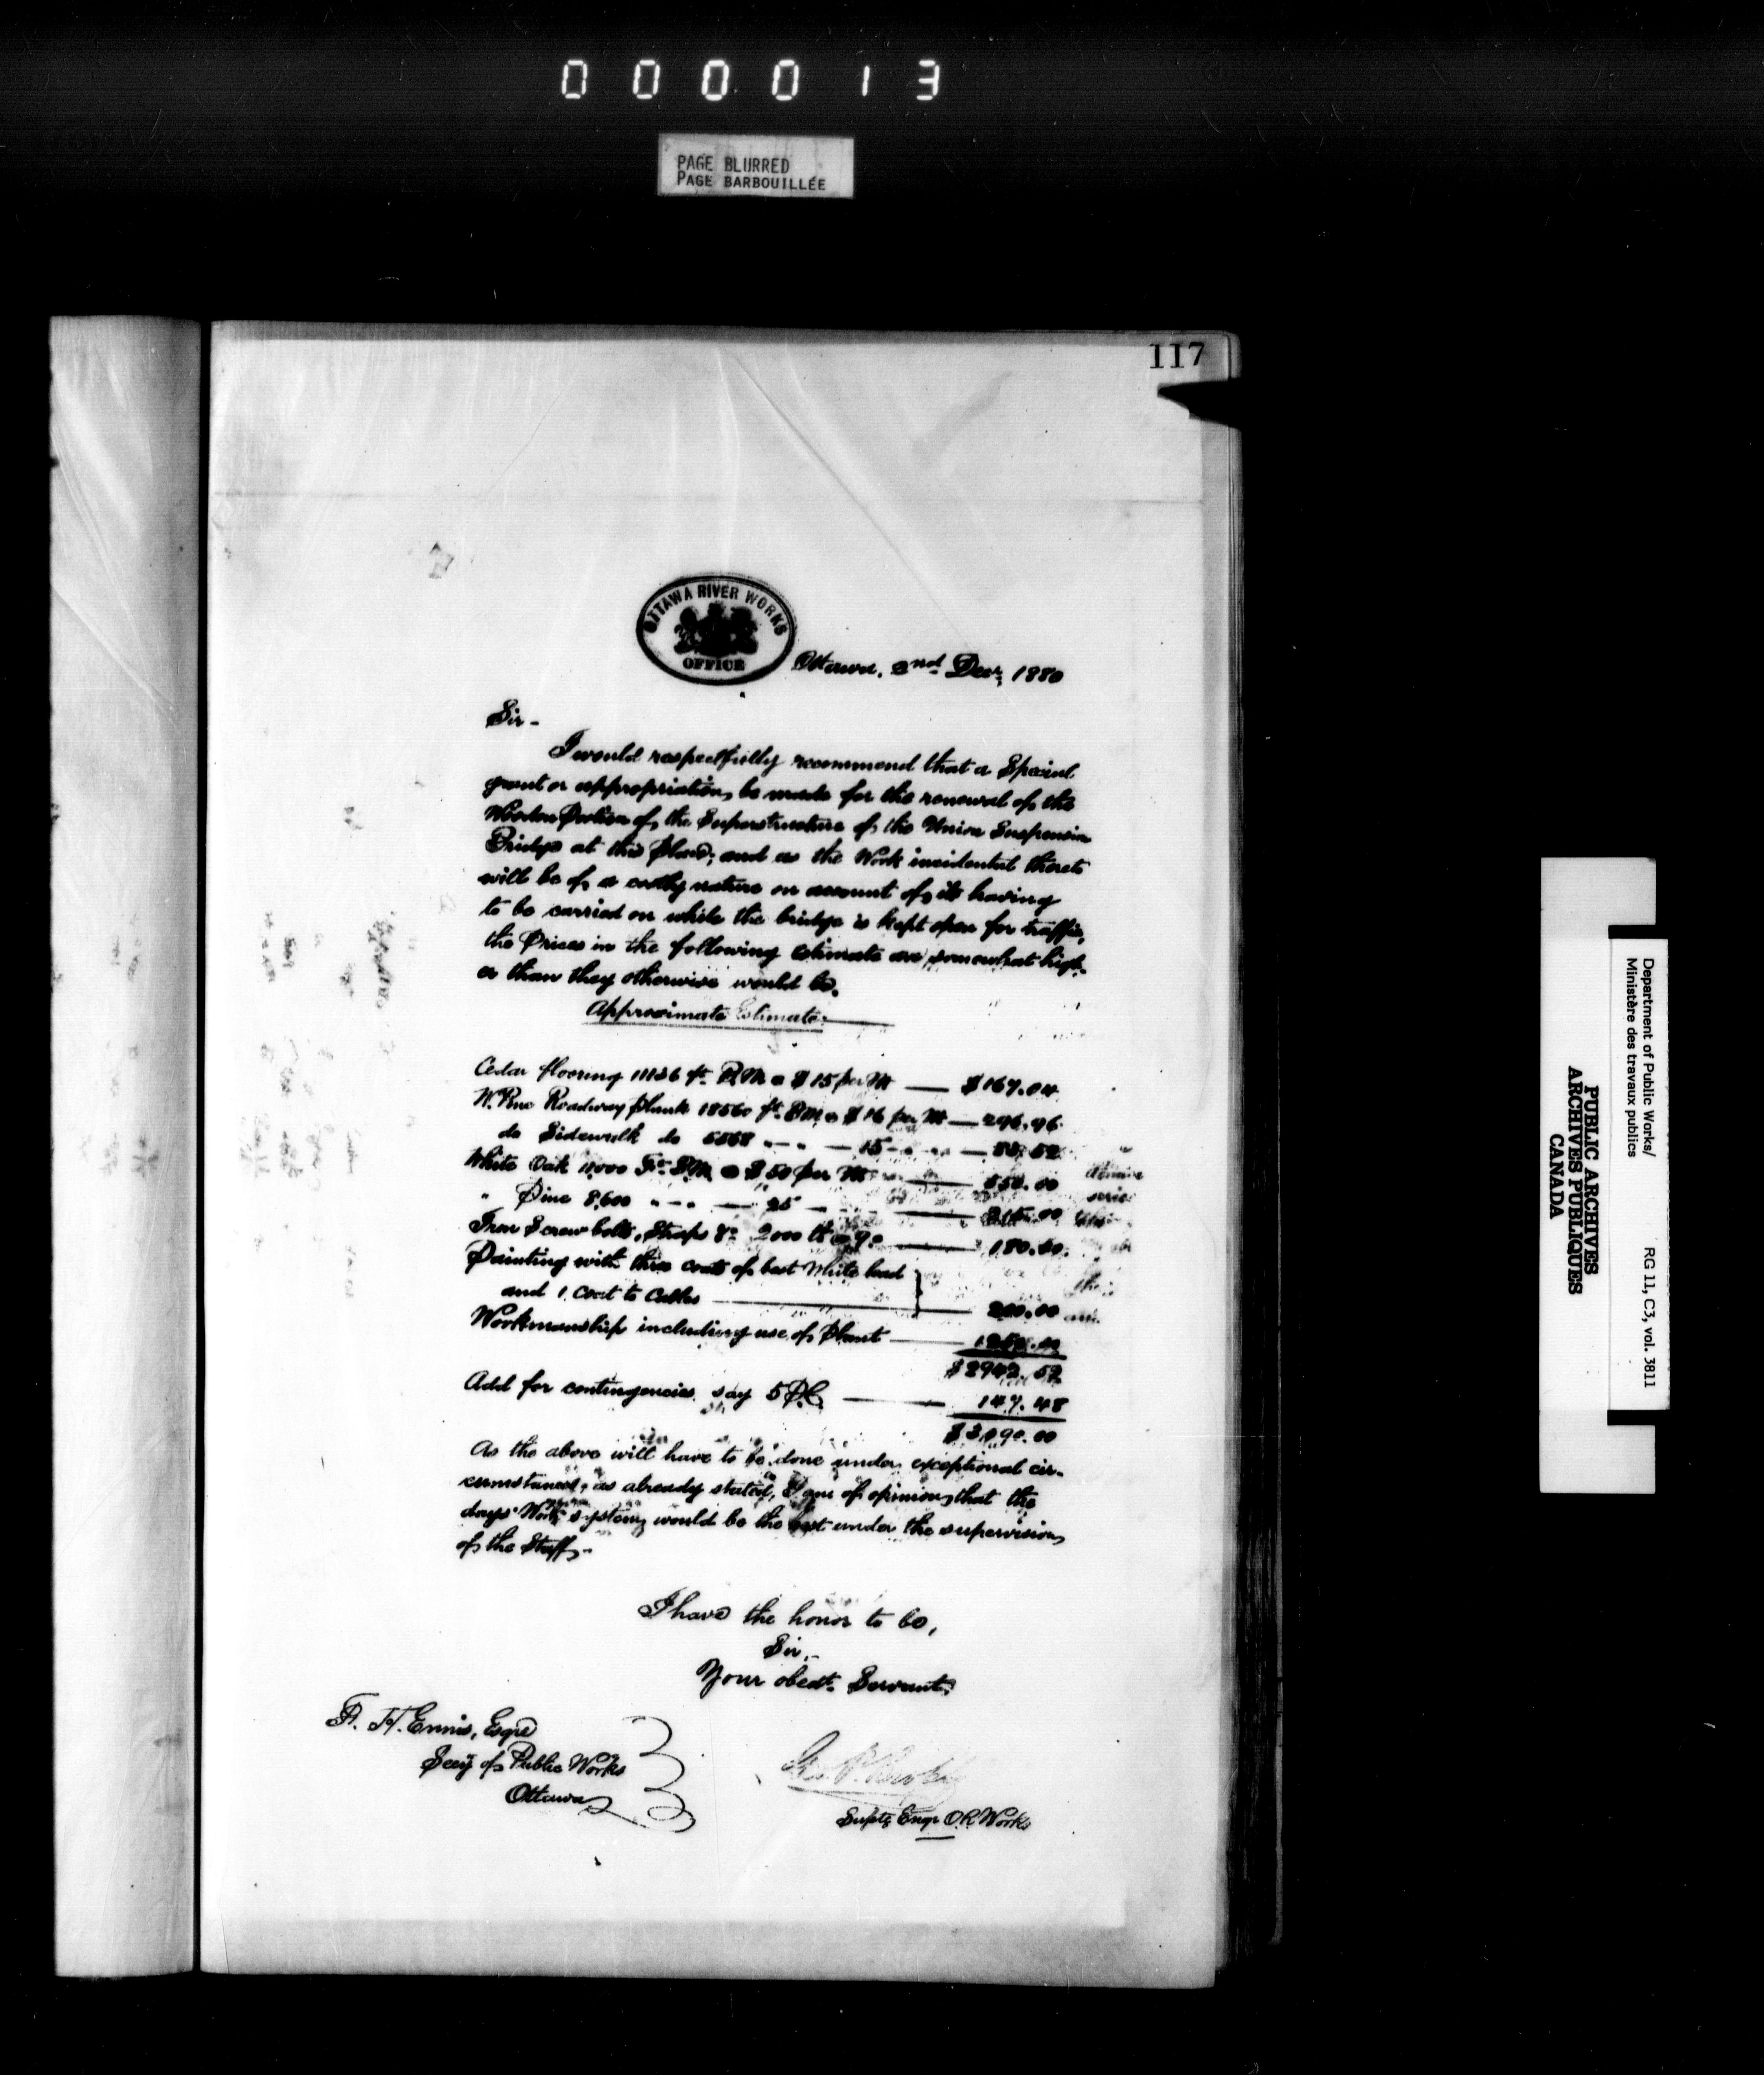 000013
PAGE BLURRED
PAGE BARBOUILLÉE
117
OTTAWA RIVER WORKS
OFFICE
Ottawa, 2nd Decr, 1880
Sir -
I would respectfully recommend that a Special
grant or appropriation be made for the renewal of the
Wooden Portion of the Superstructure of the Union Suspension
Bridge at this place; and as the Work incidental thereto
will be of a costly nature on account of its having
to be carried on while the bridge is kept open for traffic,
the Prices in the following Estimate are somewhat high-
er than they otherwise would be.
Approximate Estimate:
Cedar flooring 11136 ft. B.M @ $15 per M — $167.04
W. Pine Roadway plank 18560 ft. B.M @ $16 per M — 296.96
do Sidewalk do 5568 " - " — 15 - " - " — 83.52
White Oak 11,000 Ft. B.M @ $50 per M — 550.00
" Pine 8,600 " - " — 25 — 215.00
Iron Screw bolts, Straps &c 2000 lb @ 9c — 180.00
Painting with three coats of best White lead
and 1 coat to Cables — 200.00
Workmanship including use of Plant — 1250.00
$2942.52
Add for contingencies say 5 P.C. — 147.48
$3,090.00
As the above will have to be done under exceptional cir-
cumstances, as already stated, I am of opinion that the
days' Work system would be the best under the supervision
of the Staff. -
I have the honor to be,
Sir, -
Your obedt. Servant,
F. H. Ennis, Esqre
Secy of Public Works
Ottawa
Geo. P. Brophy
Supts Engr O.R. Works
Department of Public Works/
Ministère des travaux publics
RG 11, C3, vol. 3811
PUBLIC ARCHIVES
ARCHIVES PUBLIQUES
CANADA